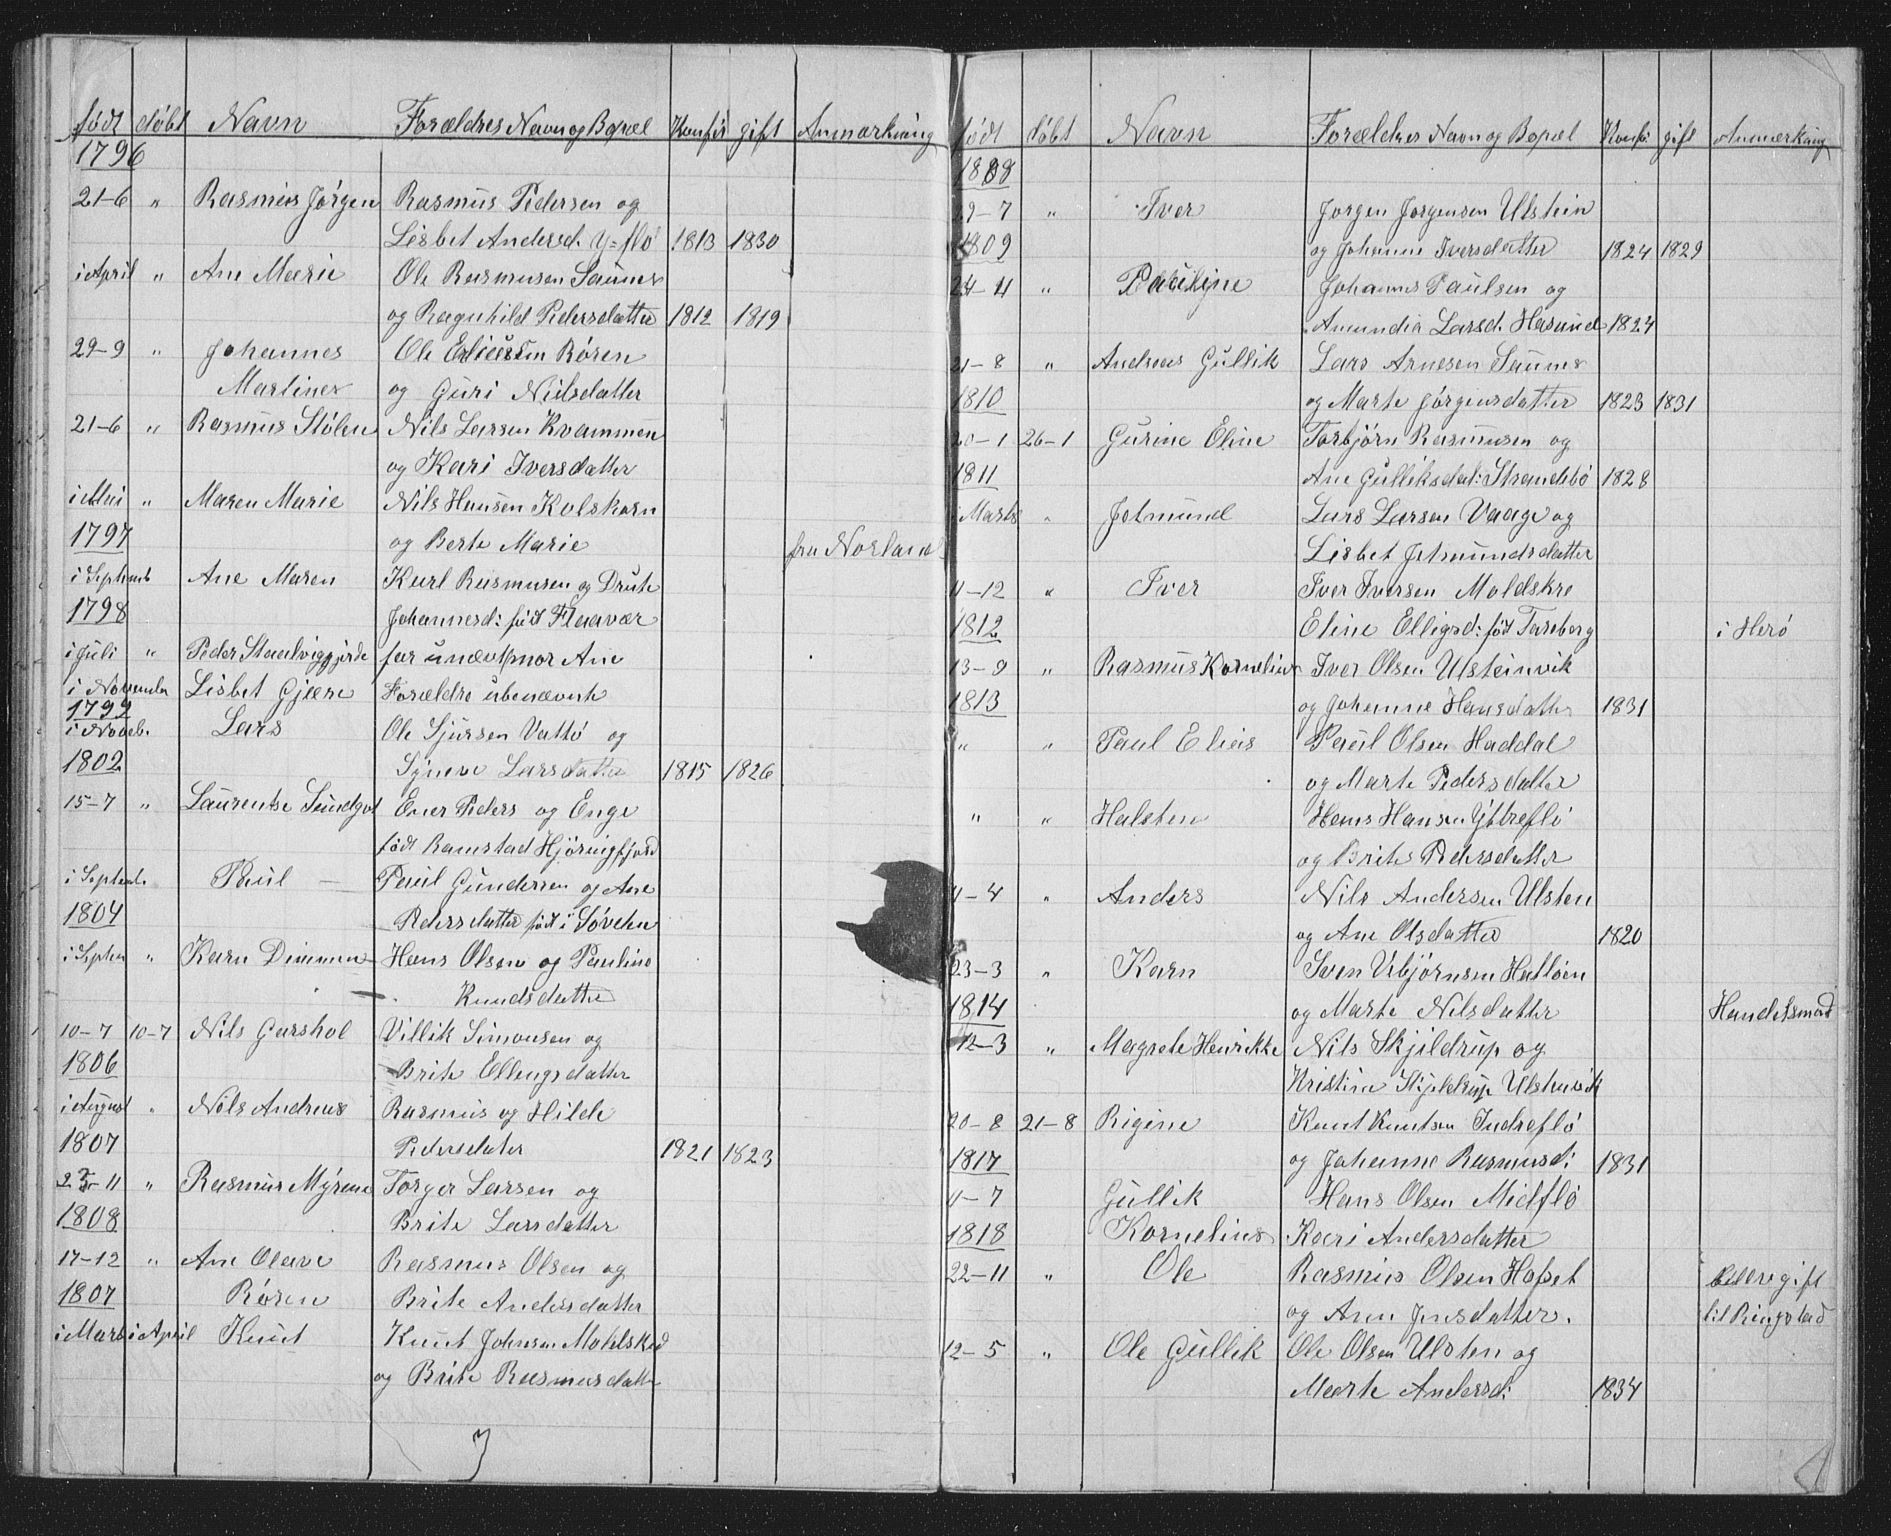 født døbt Navn Forældres Navn og Bopæl Konfir gift Anmærkning
1796
21-6 " Rasmus Jørgen Rasmus Pedersen og
Lisbet Andersd. Y=flø 1813 1830
i April " Ane Marie Ole Rasmusen Saunes
og Ragnhild Pedersdatter 1812 1819
29-9 " Johannes Ole Røren
Martines og Guri Nielsdatter
21-6 " Rasmus Stølen Nils Larsen Kvammen
og Kari Iversdatter
i Mai " Maren Marie Nils Hansen Kolskarn
1797 og Berte Marie fra Norland
i Septemb Ane Maren Karl Rasmusen og Drute
1798 Johannesd: født Flaavær
i Juli " Peder Staalvigfjørde far unævt mor Ane
i Novemb Lisbet Gjære Forældre ubenævnt
1799
i Noveb. Lars Ole Sjursen Vattø og
1802 Syneve Larsdatter 1815 1826
15-7 " Laurentse Sundgot Ener Peders og Enge
født Ramstad Hjøringfjord
i Septemb. Paul — Paul Gundersen og Ane
1804 Pedersdatter født i Søvehn
i Septem " Karn Dimmen Hans Olsen og Pauline
Knudsdatter
10-7 10-7 Nils Garshol Villik Simonsen og
1806 Brite Ellingsdatter
i August " Nils Andreas Rasmus og Hilde
1807 Pedersdater 1821 1823
23-11 " Rasmus Myrene Torger Larsen og
1808 Brite Larsdatter
17-12 " Ane Olave Rasmus Olsen og
1807 Røren Brite Andersdatter
i Mars i April Knut Knut Johnsen Moldskred
og Brite Rasmusdatter
født døbt Navn Forældres Navn og Bopæl Konfi: gift Anmærkning
1808
29-7 " Iver Jorgen Jorgensen Ulstein
1809 og Johanne Iversdatter 1824 1829
24-11 " Pauline Johannes Paulsen og
Amundia Larsd. Hasund 1824
21-8 " Andreas Gullik Lars Arnesen Saunes
1810 og Marte Jørgensdatter 1823 1831
20-1 26-1 Gurine Eline Torbjørn Rasmusen og
1811 Ane Gulliksdat: Strandebø 1828
i Marts " Jetmund Lars Larsen Vaage og
Lisbet Jetmundsdatter
11-12 " Iver Iver Iversen Moldskre
1812 Eline Elligsd: født Tareberg i Herø
13-9 " Rasmus Kornelius Iver Olsen Ulsteinvik
1813 og Johanne Hansdatter 1831
" " Paul Elias Paul Olsen Haddal
og Marte Pedersdatter
" " Halsten Hans Hansen Yttreflø
og Brite Pedersdatter
11-4 " Anders Nils Andersen Ulsten
og Ane Olsdatter 1820
23-3 " Karn Sven Vebjørnsen Hatløen
1814 og Marte Nilsdatter Handelsmad
12-3 " Magrete Henrikke Nils Skjildrup og
Kristine Skjeldrup Ulstenvik
20-8 21-8 Rigine Knut Knutsen Indreflø
1817 og Johanne Rasmusd: 1831
11-7 Gullik Hans Olsen Midflø
1818 Kornelius Kari Andersdatter
22-11 " Ole Rasmus Olsen Hofset blev gift
og Ane Jensdatter. til Ringstad
12-5 " Ole Gullik Ole Olsen Ulsten og
Marte Andersd: 1834